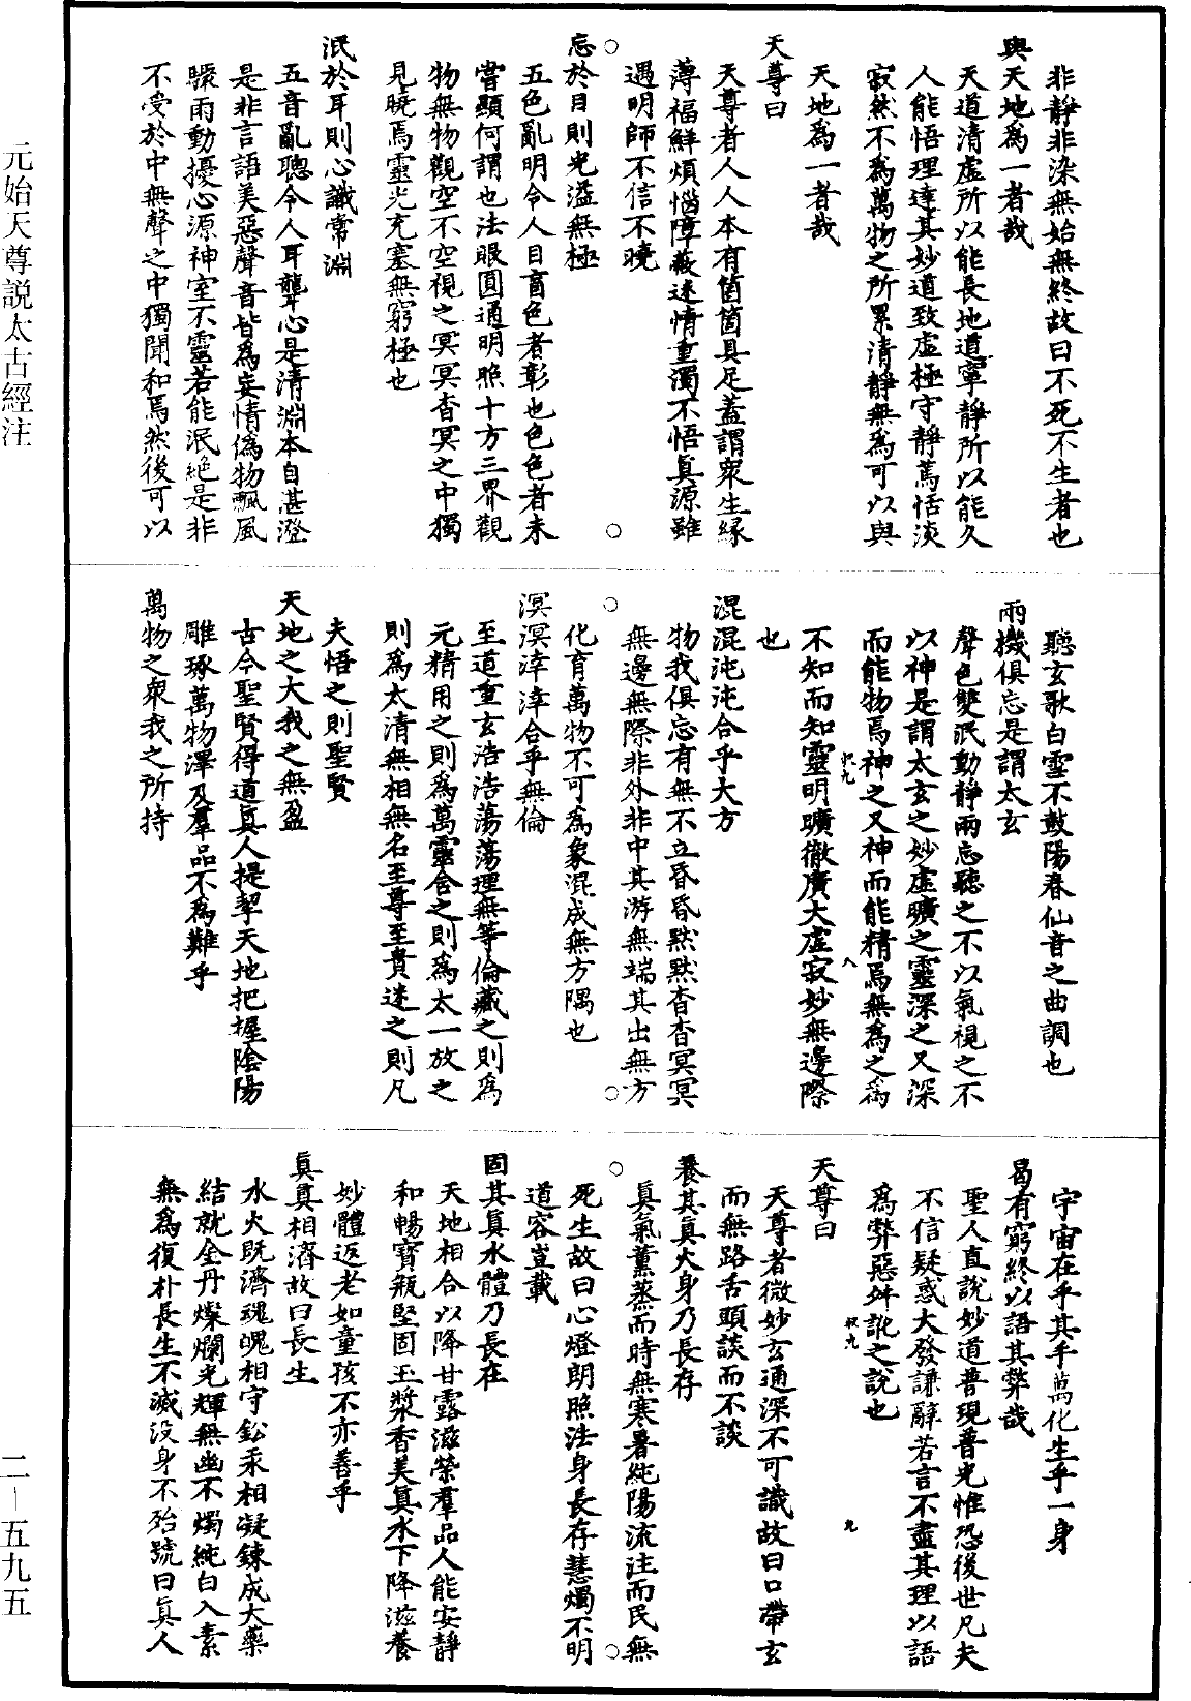 非靜非染無始無終故曰不死不生者也
與天地爲一者哉
天道清虛所以能長地道寧靜所以能久
人能悟理達其妙道致虛極守靜篤恬淡
寂然不爲萬物之所累清靜無爲可以與
天地爲一者哉
天尊曰
天尊者人人本有箇箇具足蓋謂衆生緣
薄福鮮煩惱障蔽迷情重濁不悟眞源雖
遇明師不信不曉
忘於目則光溢無極
五色亂明令人目盲色者彰也色色者未
嘗顯何謂也法眼圓通明照十方三界觀
物無物觀空不空視之冥冥杳冥之中獨
見曉焉靈光充塞無窮極也
泯於耳則心識常淵
五音亂聰令人耳聾心是清淵本自湛澄
是非言語美惡聲音皆爲妄情僞物飄風
驟雨動擾心源神室不靈若能泯絶是非
不受於中無聲之中獨聞和焉然後可以
聽玄歌白雪不鼓陽春仙音之曲調也
兩機俱忘是謂太玄
聲色雙泯動靜兩忘聽之不以氣視之不
以神是謂太玄之妙虛曠之靈深之又深
而能物焉神之又神而能精焉無爲之爲
不知而知靈明曠徹廣大虛寂妙無邊際
也
混混沌沌合乎大方
物我俱忘有無不立昏昏默默杳杳冥冥
無邊無際非外非中其游無端其出無方
化育萬物不可爲象混成無方隅也
溟溟涬涬合乎無倫
至道重玄浩浩蕩蕩理無等倫藏之則爲
元精用之則爲萬靈含之則爲太一放之
則爲太清無相無名至尊至貴迷之則凡
夫悟之則聖賢
天地之大我之無盈
古今聖賢得道眞人提挈天地把握陰陽
雕琢萬物澤及羣品不爲難乎
萬物之衆我之所持
宇宙在乎其手萬化生乎一身
曷有窮終以語其弊哉
聖人直說妙道普現普光惟恐後世凡夫
不信疑惑大發謙辭若言不盡其理以語
爲弊惡舛訛之說也
天尊曰
天尊者微妙玄通深不可識故曰口帶玄
而無路舌頭談而不談
養其眞火身乃長存
眞氣薰蒸而時無寒暑純陽流注而民無
死生故曰心燈朗照法身長存慧燭不明
道容豈載
固其眞水體乃長在
天地相合以降甘露滋榮羣品人能安靜
和暢寶瓶堅固玉漿香美眞水下降滋養
妙體返老如童孩不亦善乎
眞眞相濟故曰長生
水火既濟魂魄相守鈆汞相凝鍊成大藥
結就金丹燦爛光輝無幽不燭純白入素
無爲復朴長生不滅没身不殆號曰眞人
元始天尊説太古經注
二—五九五